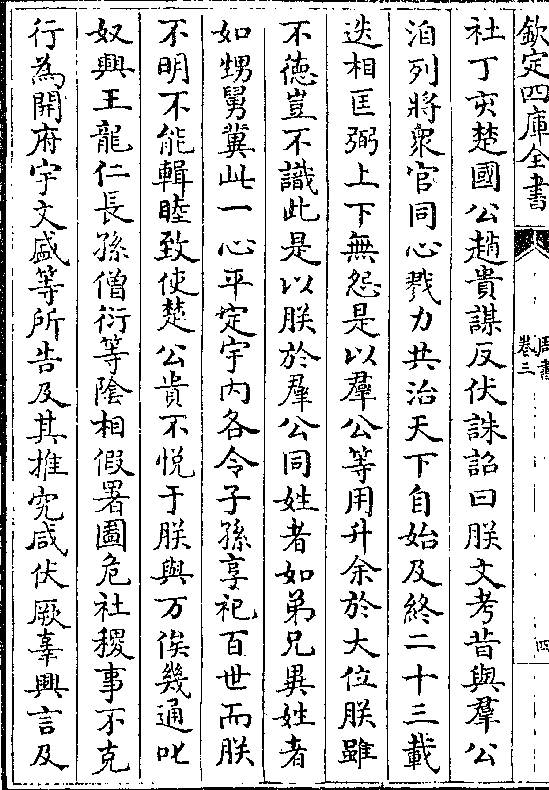 欽定四庫全書
周書
卷三
四
社丁亥楚國公趙貴謀反伏誅詔曰朕文考昔與羣公
洎列將衆官同心戮力共治天下自始及終二十三載
迭相匡弼上下無怨是以羣公等用升余於大位朕雖
不徳豈不識此是以朕於羣公同姓者如弟兄異姓者
如甥舅冀此一心平定宇内各令子孫享祀百世而朕
不明不能輯睦致使楚公貴不悦于朕與万俟幾通叱
奴興王龍仁長孫僧衍等陰相假署圖危社稷事不克
行為開府宇文盛等所告及其推究咸伏厥辜興言及